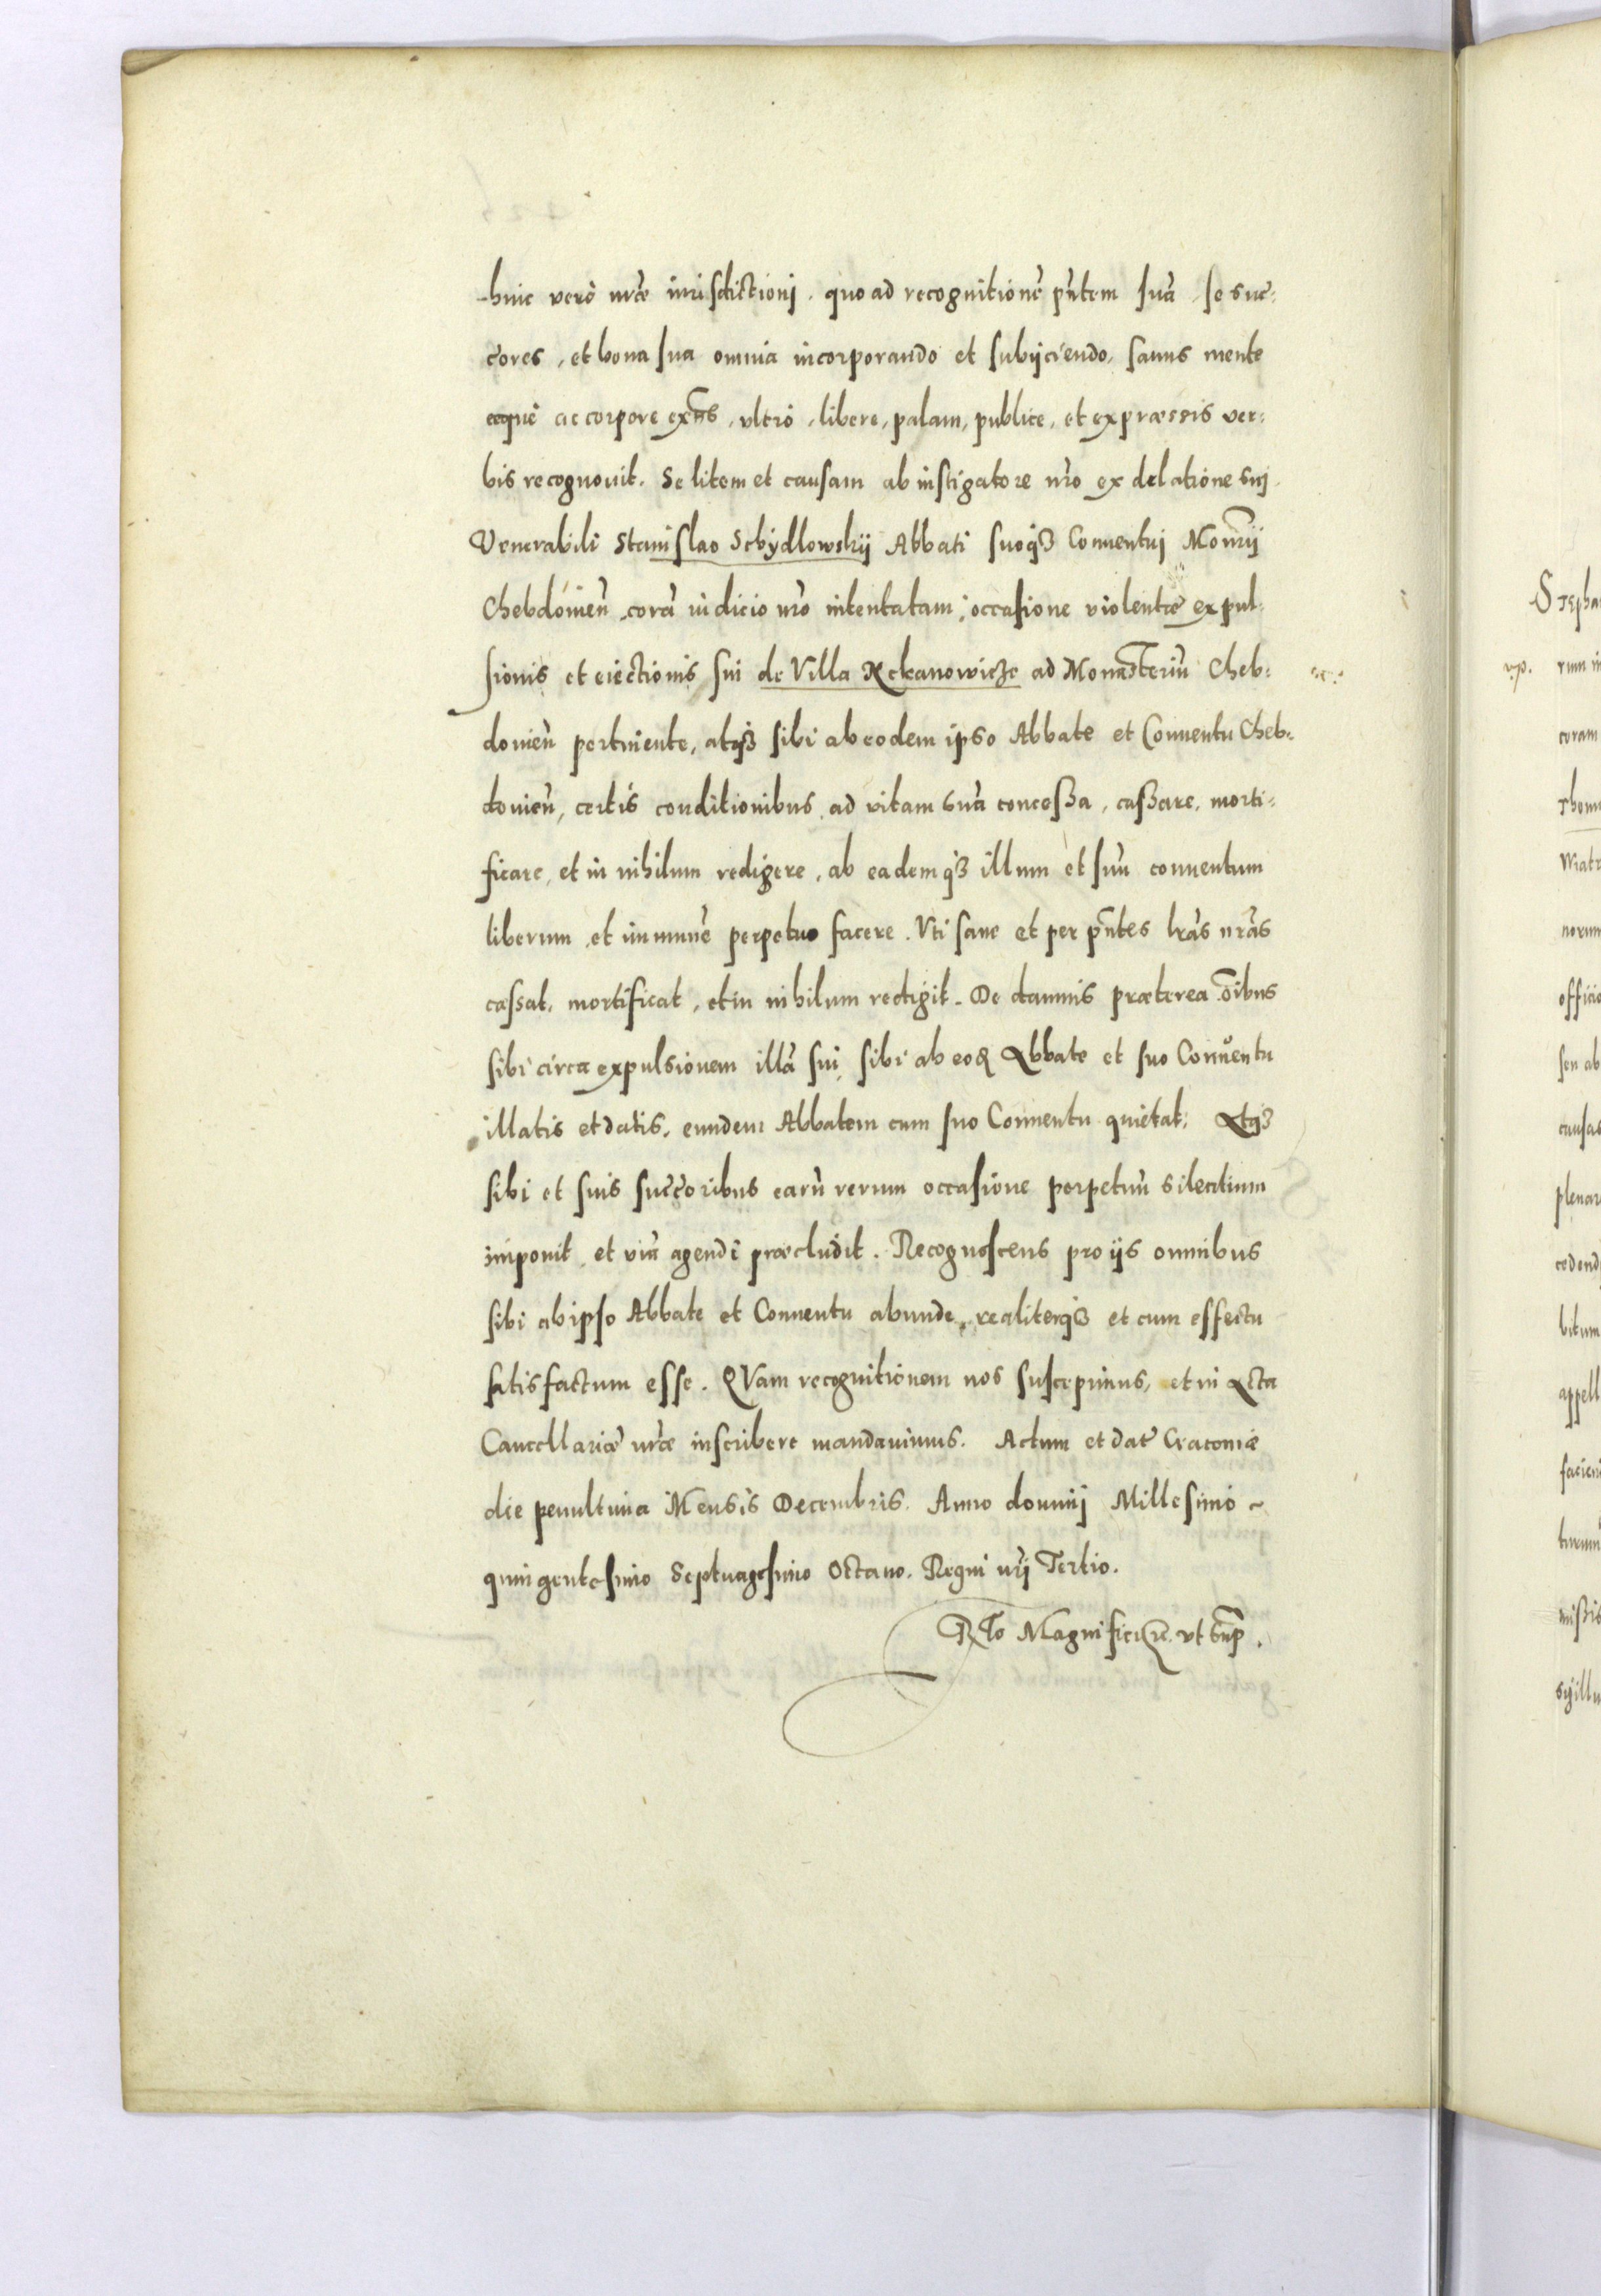 huic verò nrae iurisdictioni. quo ad recognitionē pñtem suā se suc=
cores, et bona sua omnia incorporando et subijciendo, sanus mente
aequè ac corpore exñs, vltrò, libere, palam, publice, et expraessis ver=
bis recognouit. Se litem et causam ab instigatore nro ex delatione suj
Venerabili Stanislao Sebydlowskij Abbati suoqз Conuentuj Monrij
Chebdouień, corā iudicio nro intentatam, occasione violentae expul=
sionis et eiectionis sui de Villa Rekanowicze ad Monasteriū Cheb=
douień pertinente, atqз sibi ab eodem ipso Abbate et Conuentu Cheb=
douień, certis conditionibus ad vitam suā concessa, cassare, morti=
ficare, et in nihilum redigere, ab eademqз illum et suū conuentum
liberum et immunē perpetuo facere. Vti sane et per pñtes lrās nrās
cassat, mortificat, et in nihilum redigit. De damnis praeterea oībus
sibi circa expulsionem illā sui sibi ab eoꝶ Abbate et suo Conuentu
illatis et datis, eundem Abbatem cum suo Conuentu quietat, Atqз
sibi et suis succoribus earū rerum occasione perpetuū silentium
imponit et viā agendi praecludit. Recognoscens pro ijs omnibus
sibi ab ipso Abbate et Conuentu abunde, realiterqз et cum effectu
satisfactum esse. QVam recognitionem nos suscepimus, et in Acta
Cancellariae nrae inscribere mandauimus. Actum et dat Cracouiae
die penultima Mensis Decembris. Anno dominj Millesimo ~
quingentesimo Septuagesimo Octauo. Regni nrj Tertio.
Rlo Magnifici &c. vt sup.